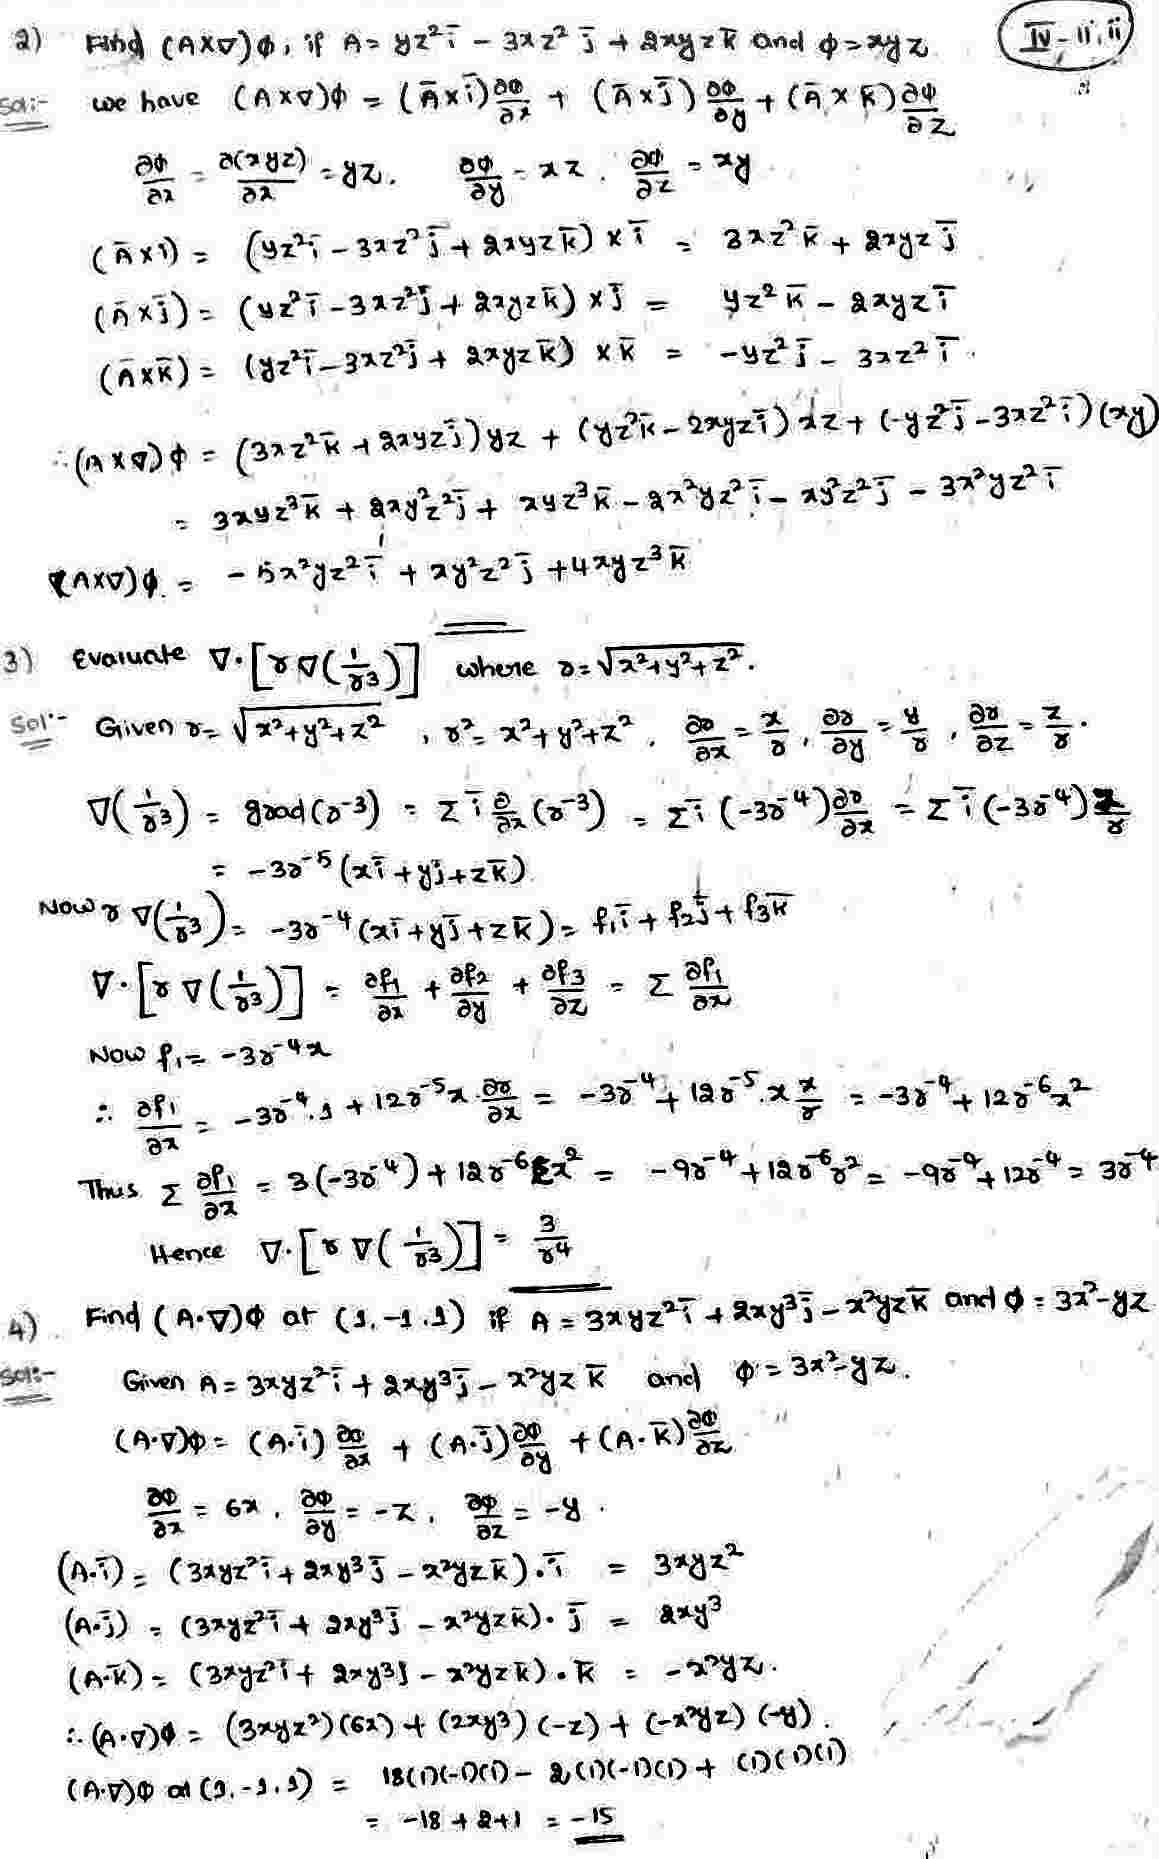 IV-ii, ii
2) Find (A×∇)φ, if A = yz² i̅ - 3xz² j̅ + 2xyz k̅ and φ = xyz.
Sol:- we have (A×∇)φ = (A̅×i̅) ∂φ/∂x + (A̅×j̅) ∂φ/∂y + (A̅×k̅) ∂φ/∂z
∂φ/∂x = ∂(xyz)/∂x = yz, ∂φ/∂y = xz, ∂φ/∂z = xy
(A̅×i) = (yz² i̅ - 3xz² j̅ + 2xyz k̅) × i̅ = 3xz² k̅ + 2xyz j̅
(A̅×j̅) = (yz² i̅ - 3xz² j̅ + 2xyz k̅) × j̅ = yz² k̅ - 2xyz i̅
(A̅×k̅) = (yz² i̅ - 3xz² j̅ + 2xyz k̅) × k̅ = -yz² j̅ - 3xz² i̅.
∴ (A×∇)φ = (3xz² k̅ + 2xyz j̅) yz + (yz² k̅ - 2xyz i̅) xz + (-yz² j̅ - 3xz² i̅)(xy)
= 3xyz³ k̅ + 2xy²z² j̅ + xyz³ k̅ - 2x²yz² i̅ - xy²z² j̅ - 3x²yz² i̅
(A×∇)φ = -5x²yz² i̅ + xy²z² j̅ + 4xyz³ k̅
3) Evaluate ∇·[r∇(1/r³)] where r = √(x²+y²+z²).
Sol:- Given r = √(x²+y²+z²), r² = x²+y²+z², ∂r/∂x = x/r, ∂r/∂y = y/r, ∂r/∂z = z/r.
∇(1/r³) = grad(r⁻³) = Σ i̅ ∂/∂x (r⁻³) = Σ i̅ (-3r⁻⁴) ∂r/∂x = Σ i̅ (-3r⁻⁴) x/r
= -3r⁻⁵ (x i̅ + y j̅ + z k̅)
Now r ∇(1/r³) = -3r⁻⁴ (x i̅ + y j̅ + z k̅) = f₁ i̅ + f₂ j̅ + f₃ k̅
∇·[r ∇(1/r³)] = ∂f₁/∂x + ∂f₂/∂y + ∂f₃/∂z = Σ ∂f₁/∂x
Now f₁ = -3r⁻⁴x
∴ ∂f₁/∂x = -3r⁻⁴.1 + 12r⁻⁵x.∂r/∂x = -3r⁻⁴ + 12r⁻⁵.x x/r = -3r⁻⁴ + 12r⁻⁶x²
Thus Σ ∂f₁/∂x = 3(-3r⁻⁴) + 12r⁻⁶Σx² = -9r⁻⁴ + 12r⁻⁶r² = -9r⁻⁴ + 12r⁻⁴ = 3r⁻⁴
Hence ∇·[r ∇(1/r³)] = 3/r⁴
4). Find (A·∇)φ at (1,-1,1) if A = 3xyz² i̅ + 2xy³ j̅ - x²yz k̅ and φ = 3x²-yz
Sol:- Given A = 3xyz² i̅ + 2xy³ j̅ - x²yz k̅ and φ = 3x²-yz.
(A·∇)φ = (A·i̅) ∂φ/∂x + (A·j̅) ∂φ/∂y + (A·k̅) ∂φ/∂z
∂φ/∂x = 6x, ∂φ/∂y = -z, ∂φ/∂z = -y.
(A·i̅) = (3xyz² i̅ + 2xy³ j̅ - x²yz k̅)·i̅ = 3xyz²
(A·j̅) = (3xyz² i̅ + 2xy³ j̅ - x²yz k̅)·j̅ = 2xy³
(A·k̅) = (3xyz² i̅ + 2xy³ j̅ - x²yz k̅)·k̅ = -x²yz.
∴ (A·∇)φ = (3xyz²)(6x) + (2xy³)(-z) + (-x²yz)(-y).
(A·∇)φ at (1,-1,1) = 18(1)(-1)(1) - 2(1)(-1)(1) + (1)(1)(1)
= -18 + 2 + 1 = -15